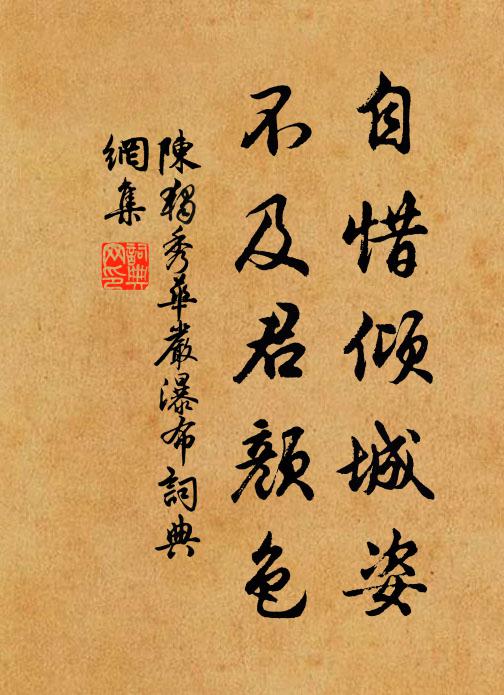 自惜傾城姿
不及君顏色
陳獨秀華嚴瀑布詞典
網集
詞典網印